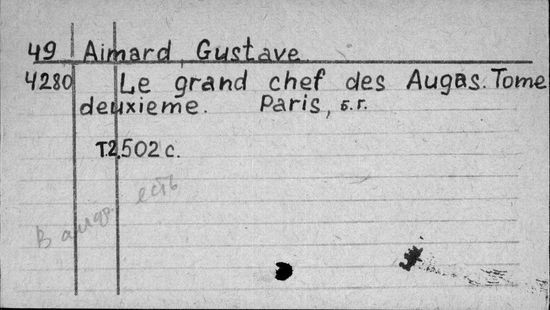 49 Aimard, Gustave
4280 Le grand chef des Augas. Tome
deuxieme. Paris, б.г.
Т.2. 502 с.
есть
В